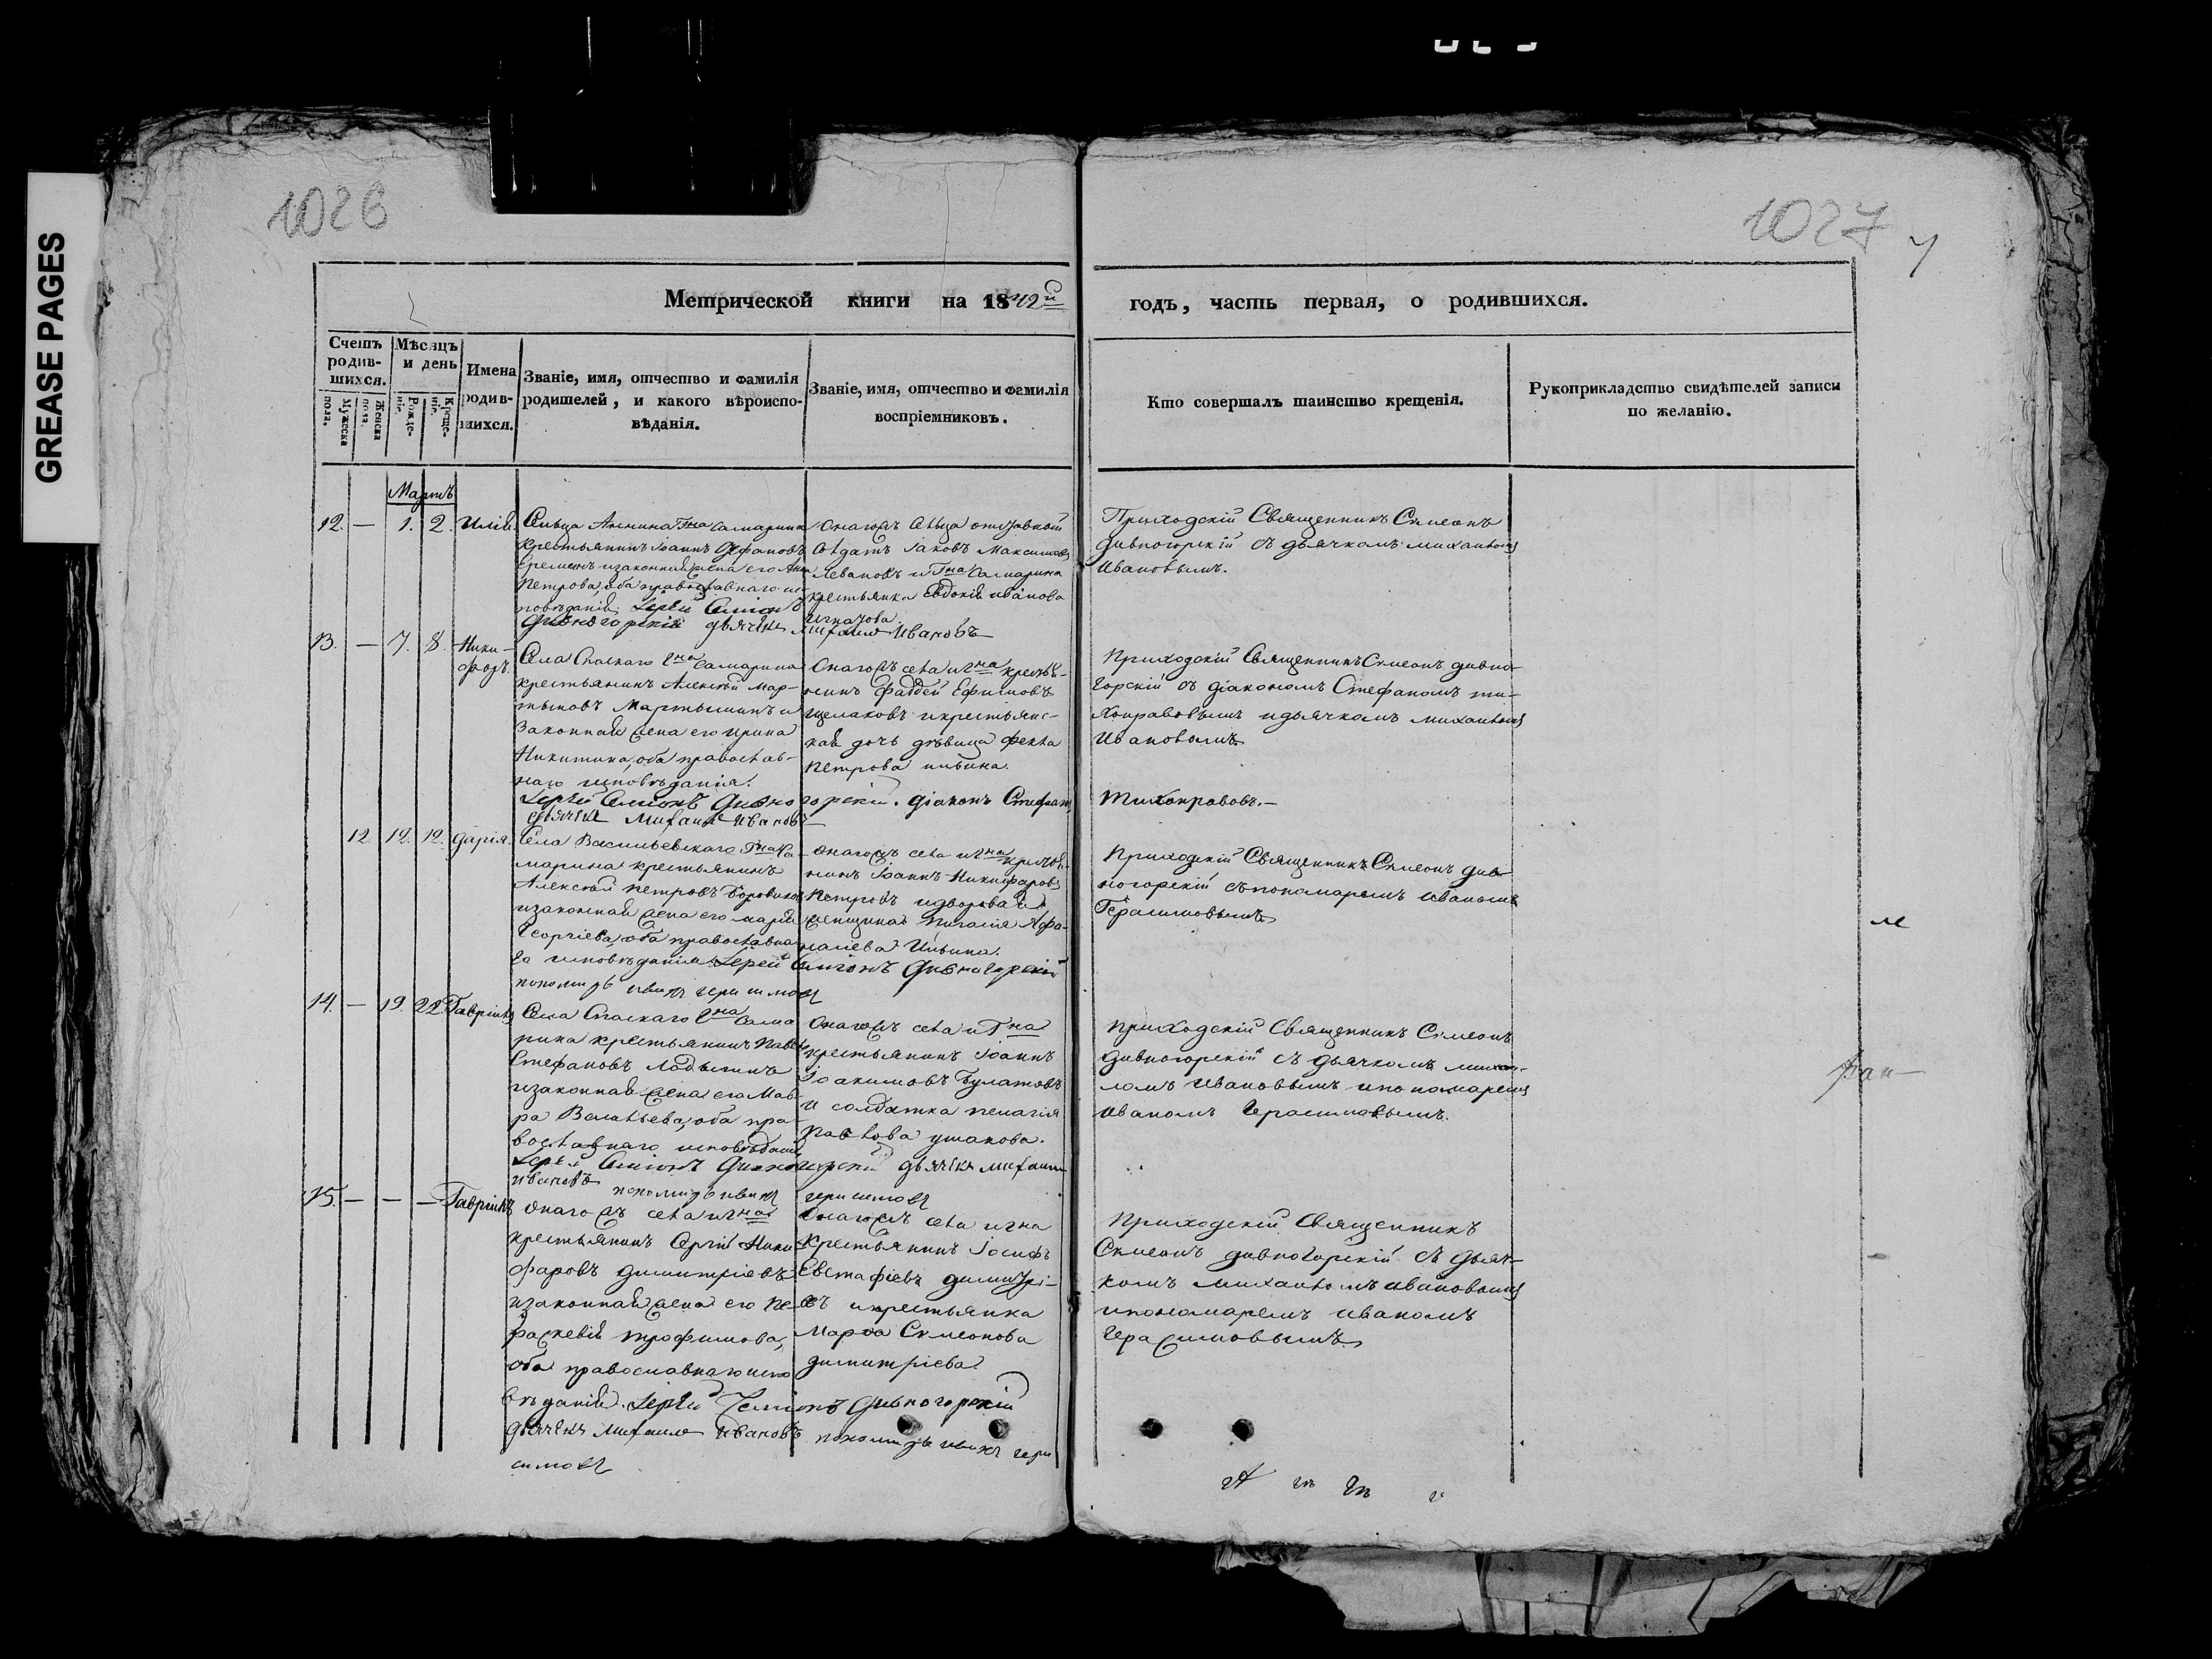 GREASE PAGES
1026
1027
Метрической книги на 1842й
годъ, часть первая, о родившихся.
Счетъ родив-шихся.
Мужеска пола.
Женска пола.
Мѣсяцъ и день
Рожде-нія.
Креще-нія.
Имена родив-шихся.
Званіе, имя, отчество и фамилія
родителей, и какого вѣроиспо-
вѣданія.
Званіе, имя, отчество и фамилія
воспріемниковъ.
Кто совершалъ таинство крещенія.
Рукоприкладство свидѣтелей записи
по желанію.
Мартъ
12. — 1. 2. Илія.
Сельца Аннина Гна Самарина
крестьянинъ Іоаннъ
и законная жена его Анна
Петрова, оба православнаго ис-
повѣданія. Іерей Симеонъ
Дивногорскій дьячекъ Михаилъ Ивановъ
Онагожъ сельца отставной
солдатъ Іаковъ Максимовъ
и Гна Самарина
крестьянка Евдокія Иванова
Игнатова.
Приходскій Священникъ Симеонъ
Дивногорскій съ дьячкомъ Михаиломъ
Ивановымъ.
13. — 7. 8. Ники-
форъ.
Села Спаскаго Гна Самарина
крестьянинъ Алексѣй Мар-
тыновъ Мартышинъ и
законная жена его Ирина
Никитина, оба православ-
наго исповѣданія.
Іерей Симеонъ Дивногорскій. Діаконъ Стефанъ Тихонравовъ.—
дьячекъ Михаилъ Ивановъ
Онагожъ села и Гна крестья-
нинъ Фаддей Ефимовъ
и крестьянс-
кая дочь дѣвица Фекла
Петрова Ильина.
Приходскій Священникъ Симеонъ Дивно-
горскій съ діакономъ Стефаномъ Ти-
хонравовымъ и дьячкомъ Михаиломъ
Ивановымъ
12. 12. 12. Дарія.
Села Васильевскаго Гна Са-
марина крестьянинъ
Алексѣй Петровъ Боровиковъ
и законная жена его Марія
Георгіева, оба православна-
го исповѣданія. Іерей Симеонъ Дивногорскій
пономарь Иванъ Герасимовъ
Онагожъ села и Гна крестья-
нинъ Іоаннъ Никифоровъ
Петровъ и дворовая
женщина Пелагія Афа-
насіева Ильина.
Приходскій Священникъ Симеонъ Див-
ногорскій съ пономаремъ Иваномъ
Герасимовымъ
14. — 19. 22. Гавріилъ
Села Спаскаго Гна Сама-
рина крестьянинъ Павелъ
Стефановъ Ладыгинъ
и законная жена его Мав-
ра Васильева, оба пра-
вославнаго исповѣданія
Іерей Симеонъ Дивногорскій дьячекъ Михаилъ
Ивановъ пономарь Иванъ Герасимовъ
Онагожъ села и Гна
крестьянинъ Іоаннъ
Іоакимовъ Булатовъ
и солдатка Пелагія
Павлова Ушакова.
Приходскій Священникъ Симеонъ
Дивногорскій съ дьячкомъ Михаи-
ломъ Ивановымъ и пономаремъ
Иваномъ Герасимовымъ.
15. — — — Гавріилъ
Онагожъ села и Гна
крестьянинъ Сергій Ники-
форовъ Димитріевъ
и законная жена его Пе-
раскевія Трофимова,
оба православнаго испо-
вѣданія. Іерей Симеонъ Дивногорскій
дьячекъ Михаилъ Ивановъ пономарь Иванъ Гера-
симовъ
Онагожъ села и Гна
крестьянинъ Іосифъ
Евстафіевъ Димитрі-
евъ и крестьянка
Марфа Симеонова
Димитріева
Приходскій Священникъ
Симеонъ Дивногорскій съ дьяч-
комъ Михаиломъ Ивановымъ
и пономаремъ Иваномъ
Герасимовымъ